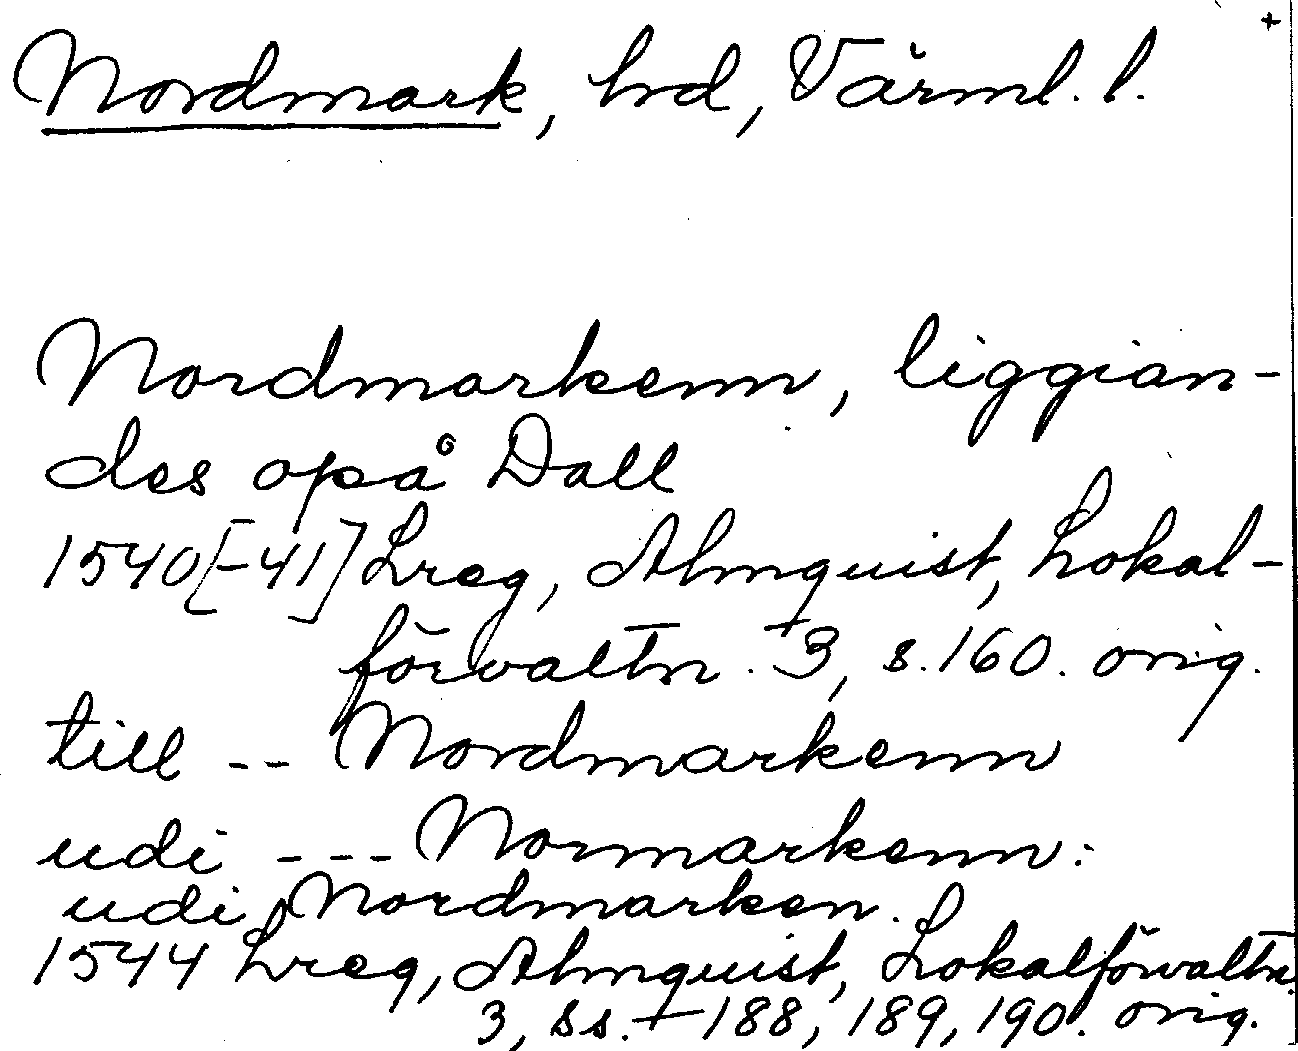 +
Nordmark, hd, Värml. l.
Nordmarkenn, liggian-
des opå Dall
1540[-41] Lreg, Almquist, Lokal-
förvaltn. + 3, s. 160. orig.
till -- Nordmarkenn
udi --- Normarkenn:
udi Nordmarken.
1544 Lreg, Almquist, Lokalförvaltn.
3, ss. + 188, 189, 190. orig.